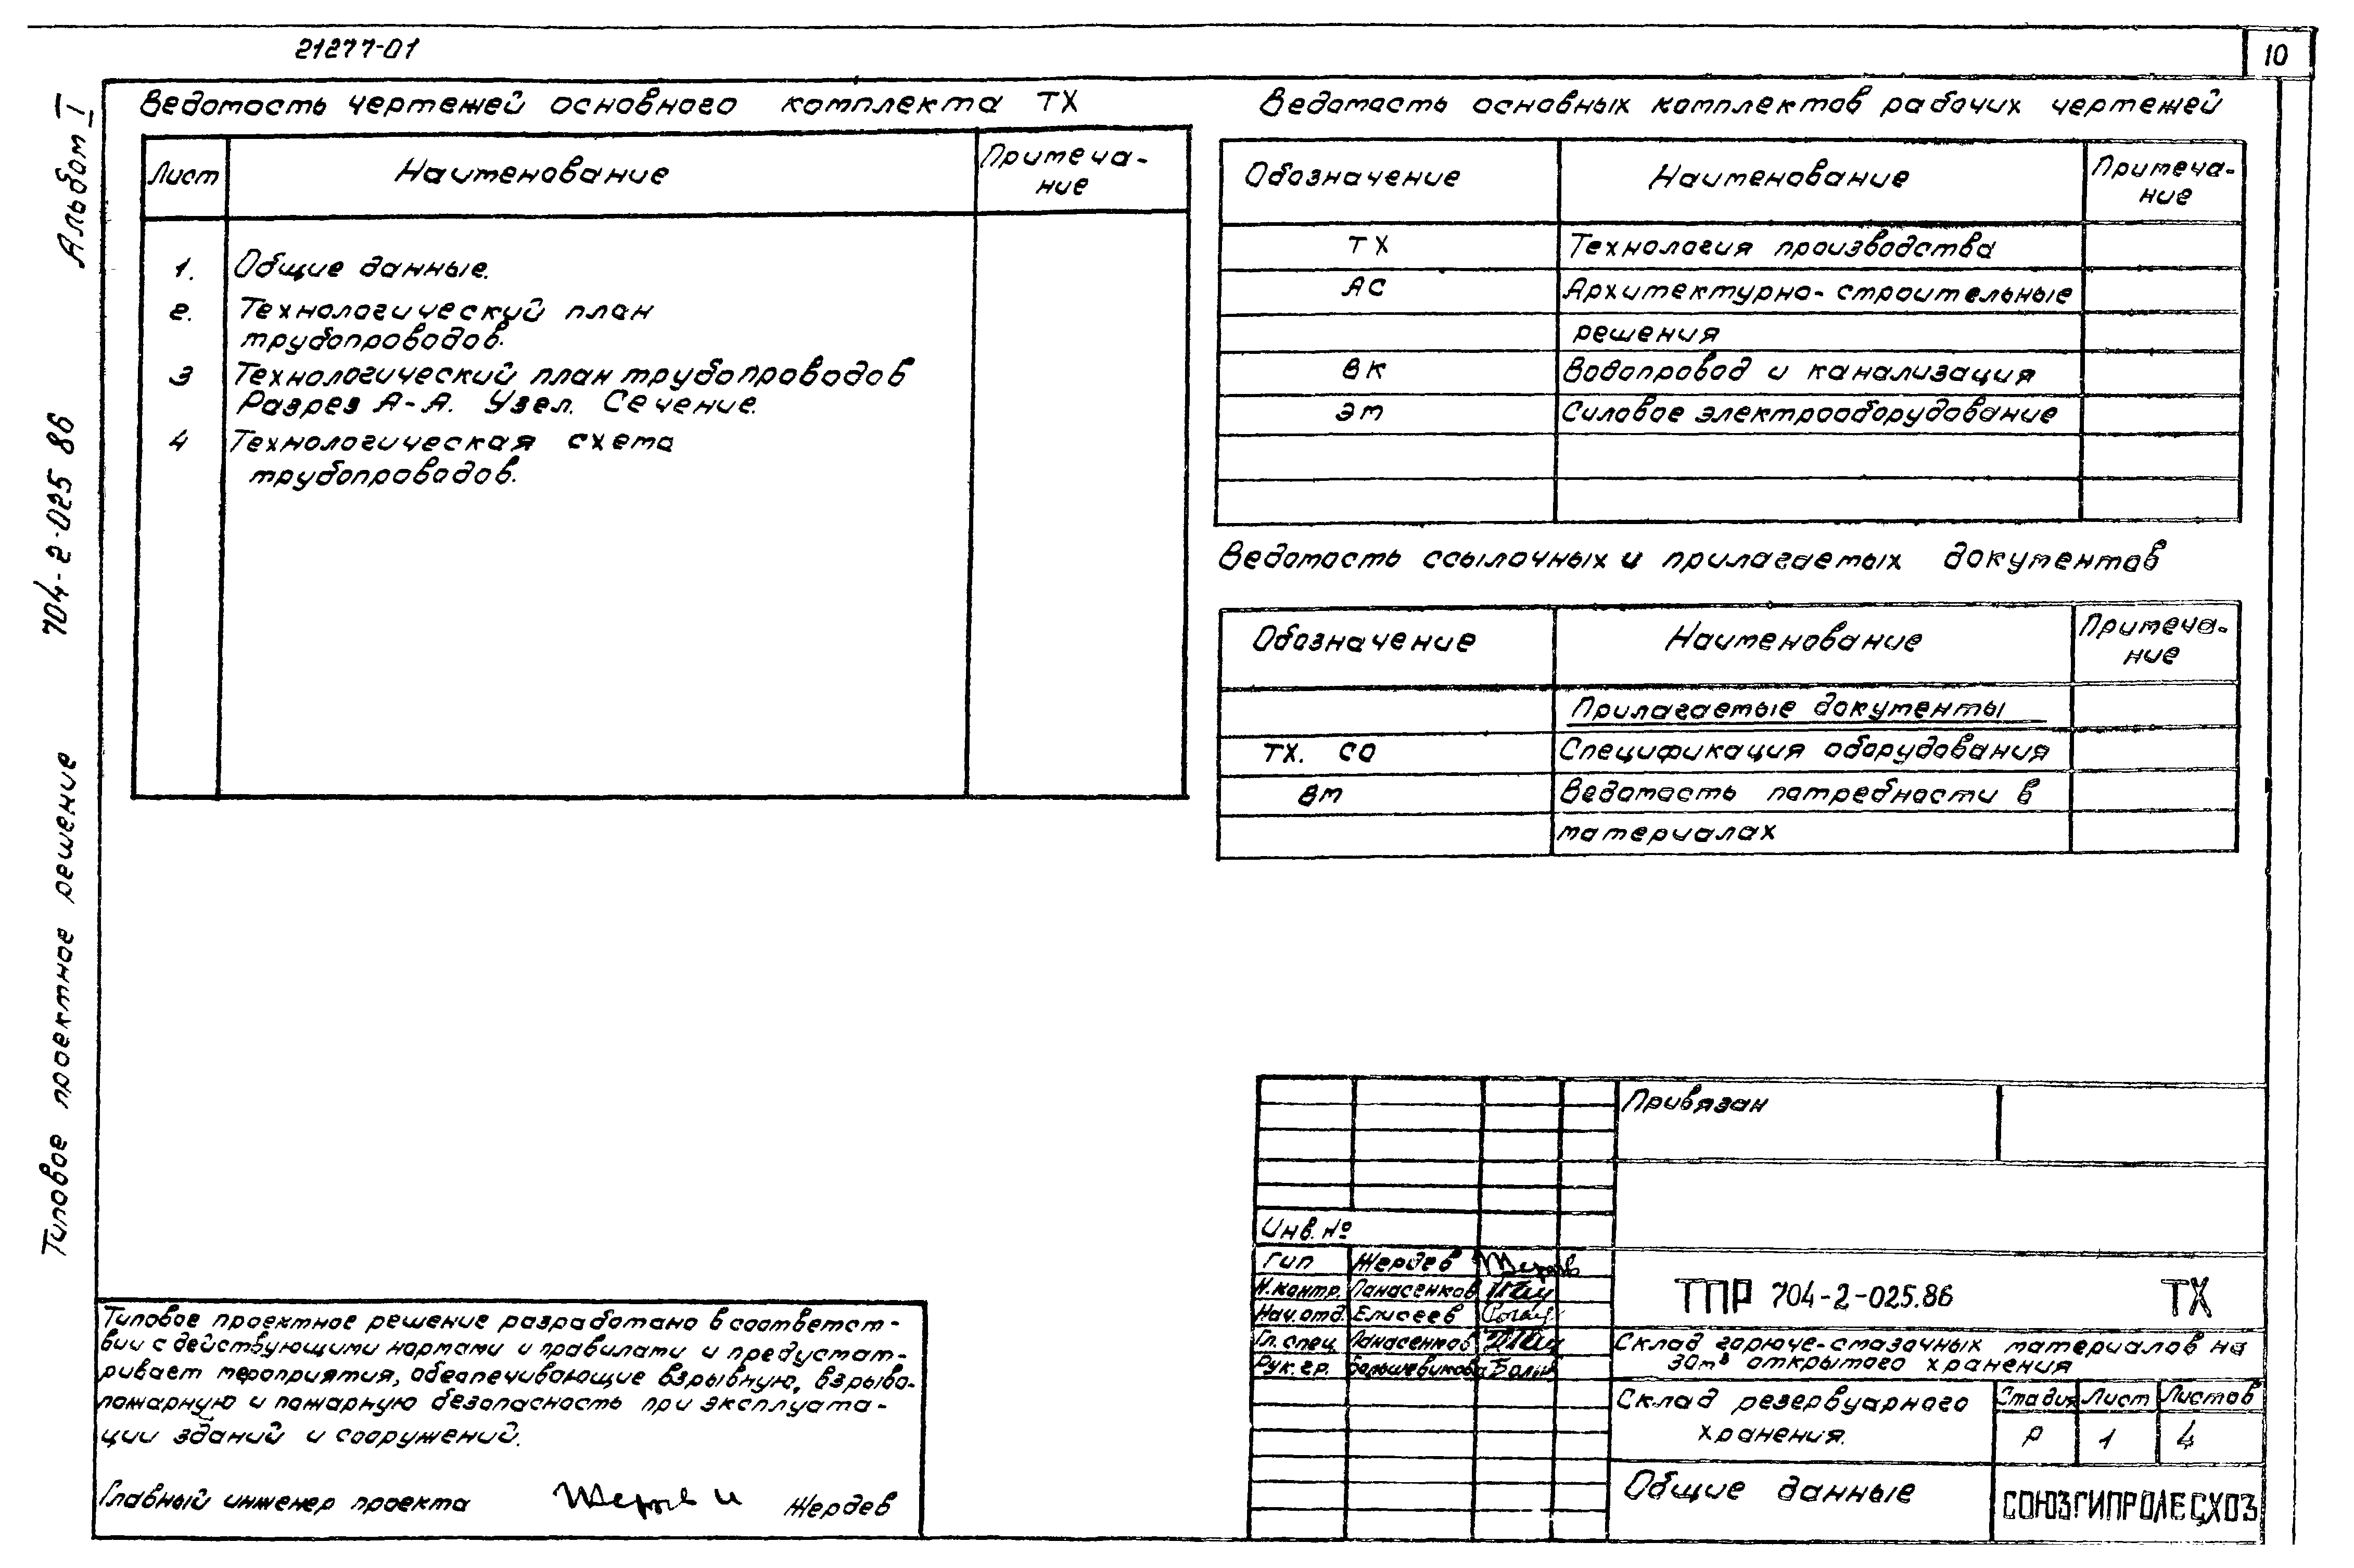 21277-01
10
Альбом I
704-2-025 86
Типовое проектное решение
Ведомость чертежей основного комплекта ТХ
Лист Наименование Примеча-
ние
1. Общие данные.
2. Технологический план
трубопроводов.
3 Технологический план трубопроводов
Разрез А-А. Узел. Сечение.
4 Технологическая схема
трубопроводов.
Ведомость основных комплектов рабочих чертежей
Обозначение Наименование Примеча-
ние
ТХ Технология производства
АС Архитектурно-строительные
решения
ВК Водопровод и канализация
ЭМ Силовое электрооборудование
Ведомость ссылочных и прилагаемых документов
Обозначение Наименование Примеча-
ние
Прилагаемые документы
ТХ. СО Спецификация оборудования
ВМ Ведомость потребности в
материалах
Типовое проектное решение разработано в соответст-
вии с действующими нормами и правилами и предусмат-
ривает мероприятия, обеспечивающие взрывную, взрыво-
пожарную и пожарную безопасность при эксплуата-
ции зданий и сооружений.
Главный инженер проекта Жердев
Привязан
Инв. №
ГИП Жердев
Н.контр. Панасенков
Нач.отд Елисеев
Гл.спец Панасенков
Рук.гр. Большевикова
ТПР 704-2-025.86 ТХ
Склад горюче-смазочных материалов на
30м³ открытого хранения
Склад резервуарного
хранения.
Стадия Лист Листов
Р 1 4
Общие данные
СОЮЗГИПРОЛЕСХОЗ